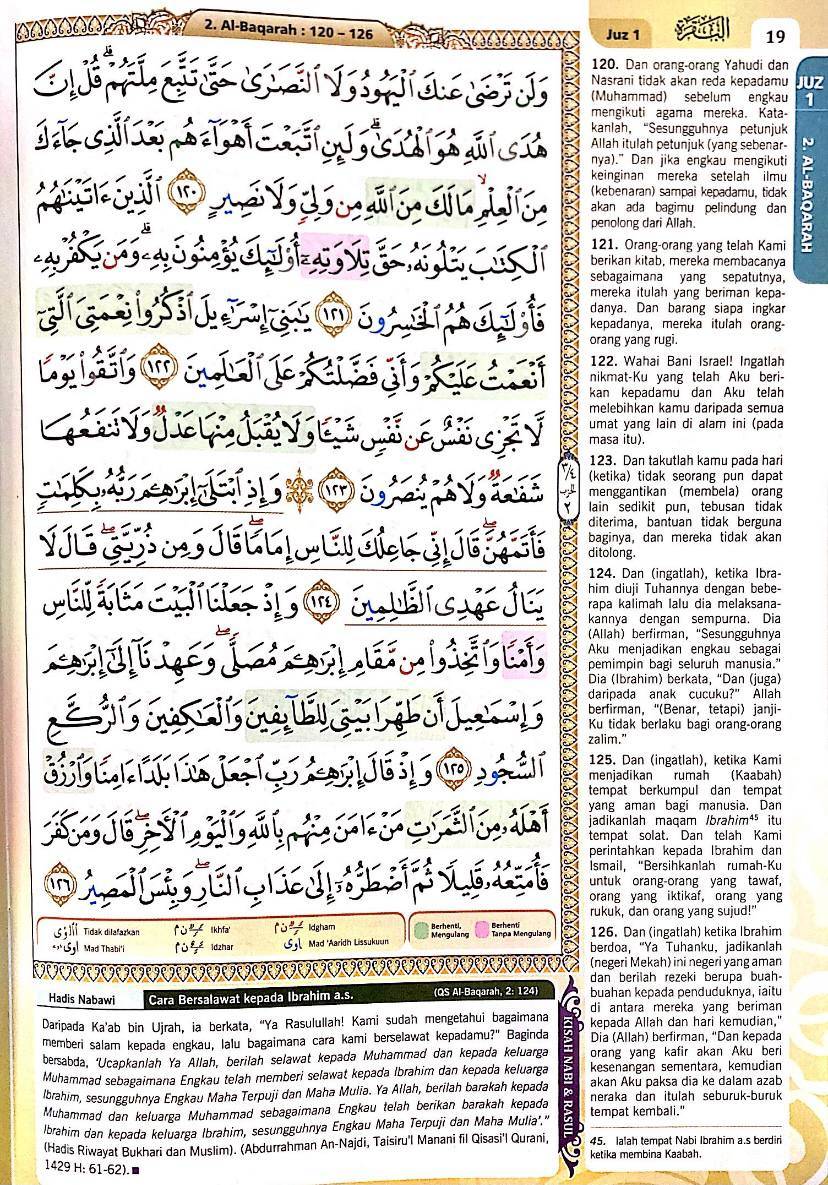 2. Al-Baqarah : 120 – 126
Juz 1
البقرة
19
وَلَن تَرْضَىٰ عَنكَ ٱلْيَهُودُ وَلَا ٱلنَّصَٰرَىٰ حَتَّىٰ تَتَّبِعَ مِلَّتَهُمْ ۗ قُلْ إِنَّ
هُدَى ٱللَّهِ هُوَ ٱلْهُدَىٰ ۗ وَلَئِنِ ٱتَّبَعْتَ أَهْوَآءَهُم بَعْدَ ٱلَّذِى جَآءَكَ
مِنَ ٱلْعِلْمِ ۙ مَا لَكَ مِنَ ٱللَّهِ مِن وَلِىٍّ وَلَا نَصِيرٍ ١٢٠ ٱلَّذِينَ ءَاتَيْنَٰهُمُ
ٱلْكِتَٰبَ يَتْلُونَهُۥ حَقَّ تِلَاوَتِهِۦٓ أُو۟لَٰٓئِكَ يُؤْمِنُونَ بِهِۦ ۗ وَمَن يَكْفُرْ بِهِۦ
فَأُو۟لَٰٓئِكَ هُمُ ٱلْخَٰسِرُونَ ١٢١ يَٰبَنِىٓ إِسْرَٰٓءِيلَ ٱذْكُرُوا۟ نِعْمَتِىَ ٱلَّتِىٓ
أَنْعَمْتُ عَلَيْكُمْ وَأَنِّى فَضَّلْتُكُمْ عَلَى ٱلْعَٰلَمِينَ ١٢٢ وَٱتَّقُوا۟ يَوْمًا
لَّا تَجْزِى نَفْسٌ عَن نَّفْسٍ شَيْـًٔا وَلَا يُقْبَلُ مِنْهَا عَدْلٌ وَلَا تَنفَعُهَا
شَفَٰعَةٌ وَلَا هُمْ يُنصَرُونَ ١٢٣ ۞ وَإِذِ ٱبْتَلَىٰٓ إِبْرَٰهِـۧمَ رَبُّهُۥ بِكَلِمَٰتٍ
فَأَتَمَّهُنَّ ۖ قَالَ إِنِّى جَاعِلُكَ لِلنَّاسِ إِمَامًا ۖ قَالَ وَمِن ذُرِّيَّتِى ۖ قَالَ لَا
يَنَالُ عَهْدِى ٱلظَّٰلِمِينَ ١٢٤ وَإِذْ جَعَلْنَا ٱلْبَيْتَ مَثَابَةً لِّلنَّاسِ
وَأَمْنًا وَٱتَّخِذُوا۟ مِن مَّقَامِ إِبْرَٰهِـۧمَ مُصَلًّى ۖ وَعَهِدْنَآ إِلَىٰٓ إِبْرَٰهِـۧمَ
وَإِسْمَٰعِيلَ أَن طَهِّرَا بَيْتِىَ لِلطَّآئِفِينَ وَٱلْعَٰكِفِينَ وَٱلرُّكَّعِ
ٱلسُّجُودِ ١٢٥ وَإِذْ قَالَ إِبْرَٰهِـۧمُ رَبِّ ٱجْعَلْ هَٰذَا بَلَدًا ءَامِنًا وَٱرْزُقْ
أَهْلَهُۥ مِنَ ٱلثَّمَرَٰتِ مَنْ ءَامَنَ مِنْهُم بِٱللَّهِ وَٱلْيَوْمِ ٱلْءَاخِرِ ۖ قَالَ وَمَن كَفَرَ
فَأُمَتِّعُهُۥ قَلِيلًا ثُمَّ أَضْطَرُّهُۥٓ إِلَىٰ عَذَابِ ٱلنَّارِ ۖ وَبِئْسَ ٱلْمَصِيرُ ١٢٦
٣/٤
الحزب
٢
Tidak dilafazkan
Mad Thabi'i
Ikhfa'
Idzhar
Idgham
Mad 'Aaridh Lissukuun
Berhenti, Mengulang
Berhenti Tanpa Mengulang
120. Dan orang-orang Yahudi dan
Nasrani tidak akan reda kepadamu
(Muhammad) sebelum engkau
mengikuti agama mereka. Kata-
kanlah, “Sesungguhnya petunjuk
Allah itulah petunjuk (yang sebenar-
nya).” Dan jika engkau mengikuti
keinginan mereka setelah ilmu
(kebenaran) sampai kepadamu, tidak
akan ada bagimu pelindung dan
penolong dari Allah.
121. Orang-orang yang telah Kami
berikan kitab, mereka membacanya
sebagaimana yang sepatutnya,
mereka itulah yang beriman kepa-
danya. Dan barang siapa ingkar
kepadanya, mereka itulah orang-
orang yang rugi.
122. Wahai Bani Israel! Ingatlah
nikmat-Ku yang telah Aku beri-
kan kepadamu dan Aku telah
melebihkan kamu daripada semua
umat yang lain di alam ini (pada
masa itu).
123. Dan takutlah kamu pada hari
(ketika) tidak seorang pun dapat
menggantikan (membela) orang
lain sedikit pun, tebusan tidak
diterima, bantuan tidak berguna
baginya, dan mereka tidak akan
ditolong.
124. Dan (ingatlah), ketika Ibra-
him diuji Tuhannya dengan bebe-
rapa kalimah lalu dia melaksana-
kannya dengan sempurna. Dia
(Allah) berfirman, “Sesungguhnya
Aku menjadikan engkau sebagai
pemimpin bagi seluruh manusia.”
Dia (Ibrahim) berkata, “Dan (juga)
daripada anak cucuku?” Allah
berfirman, “(Benar, tetapi) janji-
Ku tidak berlaku bagi orang-orang
zalim.”
125. Dan (ingatlah), ketika Kami
menjadikan rumah (Kaabah)
tempat berkumpul dan tempat
yang aman bagi manusia. Dan
jadikanlah maqam Ibrahim⁴⁵ itu
tempat solat. Dan telah Kami
perintahkan kepada Ibrahim dan
Ismail, “Bersihkanlah rumah-Ku
untuk orang-orang yang tawaf,
orang yang iktikaf, orang yang
rukuk, dan orang yang sujud!”
126. Dan (ingatlah) ketika Ibrahim
berdoa, “Ya Tuhanku, jadikanlah
(negeri Mekah) ini negeri yang aman
dan berilah rezeki berupa buah-
buahan kepada penduduknya, iaitu
di antara mereka yang beriman
kepada Allah dan hari kemudian,”
Dia (Allah) berfirman, “Dan kepada
orang yang kafir akan Aku beri
kesenangan sementara, kemudian
akan Aku paksa dia ke dalam azab
neraka dan itulah seburuk-buruk
tempat kembali.”
45. Ialah tempat Nabi Ibrahim a.s berdiri
ketika membina Kaabah.
JUZ
1
2. AL-BAQARAH
Hadis Nabawi
Cara Bersalawat kepada Ibrahim a.s.
(QS Al-Baqarah, 2: 124)
Daripada Ka'ab bin Ujrah, ia berkata, “Ya Rasulullah! Kami sudah mengetahui bagaimana
memberi salam kepada engkau, lalu bagaimana cara kami berselawat kepadamu?” Baginda
bersabda, ‘Ucapkanlah Ya Allah, berilah selawat kepada Muhammad dan kepada keluarga
Muhammad sebagaimana Engkau telah memberi selawat kepada Ibrahim dan kepada keluarga
Ibrahim, sesungguhnya Engkau Maha Terpuji dan Maha Mulia. Ya Allah, berilah barakah kepada
Muhammad dan keluarga Muhammad sebagaimana Engkau telah berikan barakah kepada
Ibrahim dan kepada keluarga Ibrahim, sesungguhnya Engkau Maha Terpuji dan Maha Mulia’.”
(Hadis Riwayat Bukhari dan Muslim). (Abdurrahman An-Najdi, Taisiru'l Manani fil Qisasi'l Qurani,
1429 H: 61-62).
KISAH NABI & RASUL